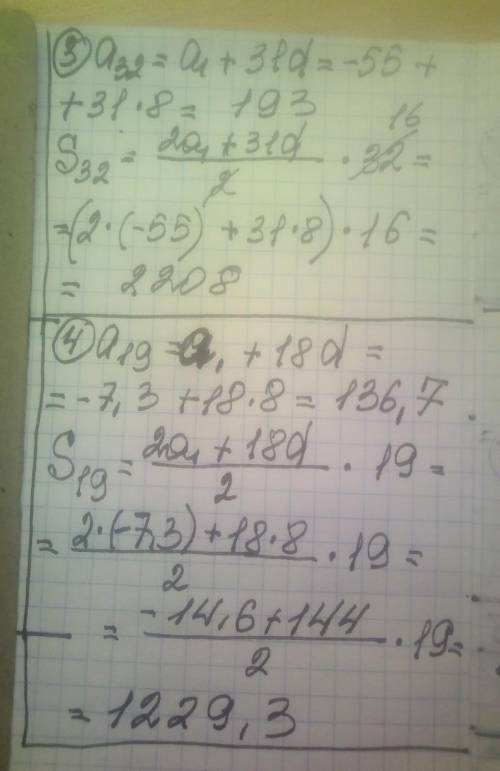 ③ a₃₂ = a₁ + 31d = -55 +
+ 31·8 = 193
S₃₂ = (2a₁ + 31d)/2 · 32 = 16
= (2·(-55) + 31·8)·16 =
= 2208
④ a₁₉ = a₁ + 18d =
= -7,3 + 18·8 = 136,7
S₁₉ = (2a₁ + 18d)/2 · 19 =
= (2·(-7,3) + 18·8)/2 · 19 =
= (-14,6 + 144)/2 · 19 =
= 1229,3